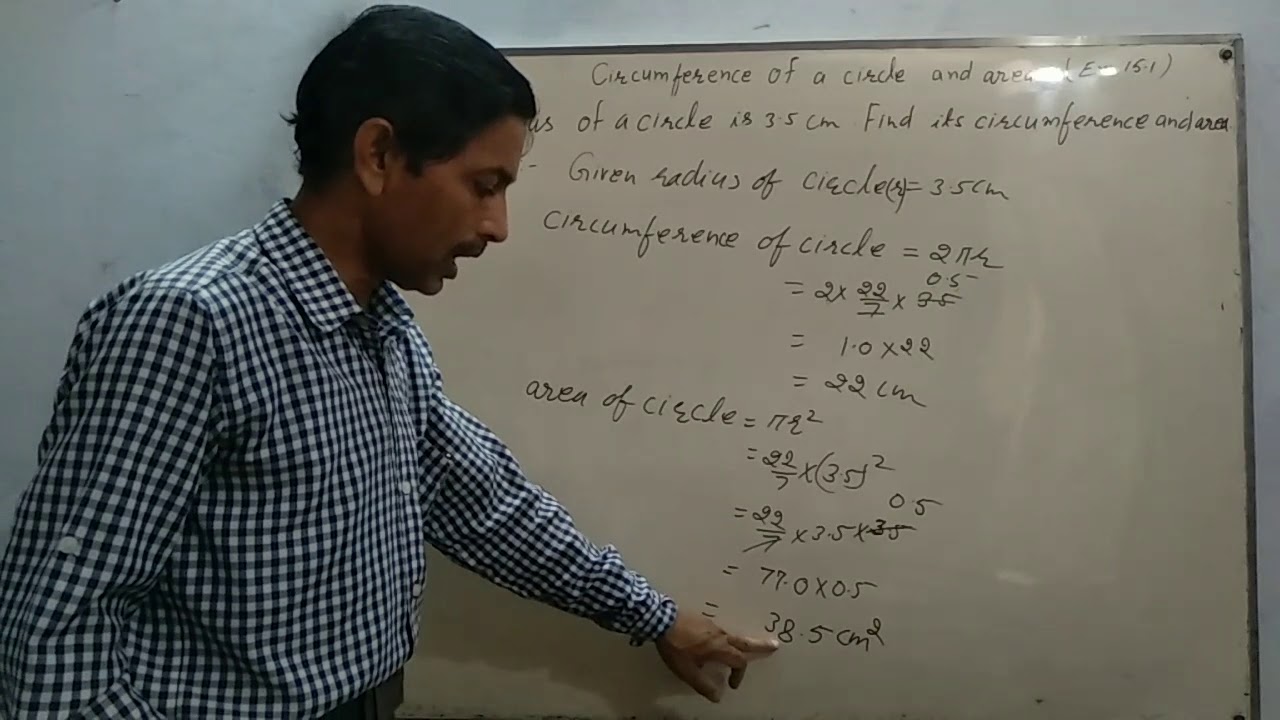 Circumference of a circle and area (Ex- 15.1)
of a circle is 3.5 cm Find its circumference and area
:- Given radius of circle(r)= 3.5cm
circumference of circle = 2πr
= 2× 22/7 × 3.5 0.5
= 1.0×22
= 22 cm
area of circle = πr²
= 22/7 ×(3.5)²
= 22/7 ×3.5×3.5 0.5
= 77.0×0.5
= 38.5 cm²